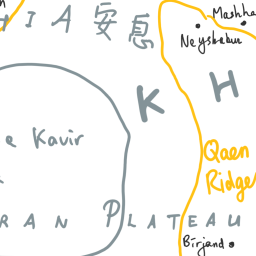 HIA 安息
Mashha
Neyshabur
K H
e Kavir
Qaen
Ridge
RAN PLATEAU
Birjand